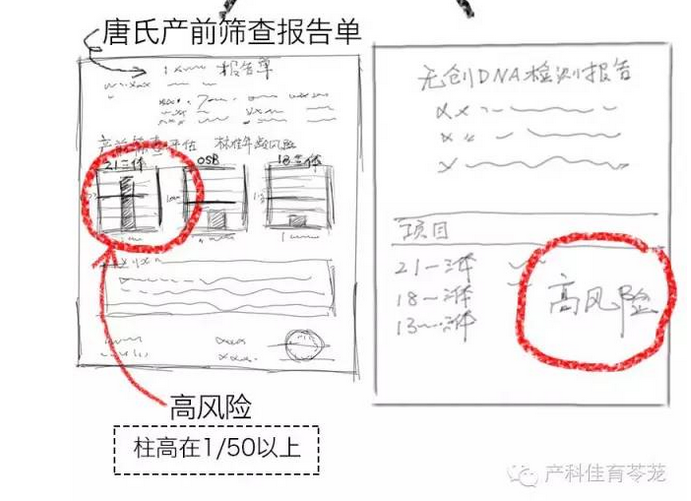 唐氏产前筛查报告单
报告单
产前筛查评估
21三体
OSB
18三体
高风险
柱高在1/50以上
无创DNA检测报告
项目
21—三体
18—三体
13—三体
高风险
产科佳育苓茏